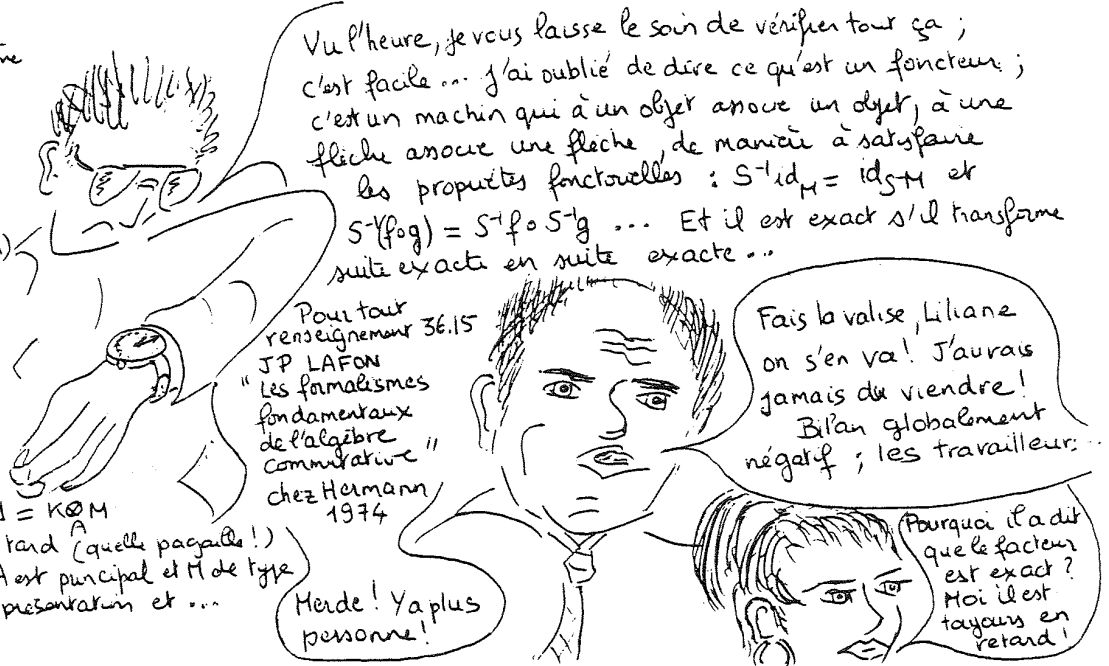 Vu l'heure, je vous laisse le soin de vérifier tout ça ;
c'est facile... J'ai oublié de dire ce qu'est un foncteur ;
c'est un machin qui à un objet associe un objet, à une
flèche associe une flèche, de manière à satisfaire
les propriétés fonctorielles : S⁻¹id_M = id_S⁻¹M et
S⁻¹(fog) = S⁻¹f o S⁻¹g ... Et il est exact s'il transforme
suite exacte en suite exacte...
Pour tout
renseignement 36.15
JP LAFON
"Les formalismes
fondamentaux
de l'algèbre
commutative"
chez Hermann
1974
Fais la valise, Liliane
on s'en va ! J'aurais
jamais du viendre !
Bilan globalement
négatif ; les travailleur...
= K⊗M
A
tard (quelle pagaille !)
A est principal et M de type
présentation et ...
Merde ! Ya plus
personne !
Pourquoi il a dit
que le facteur
est exact ?
Moi il est
tayours en
retard !